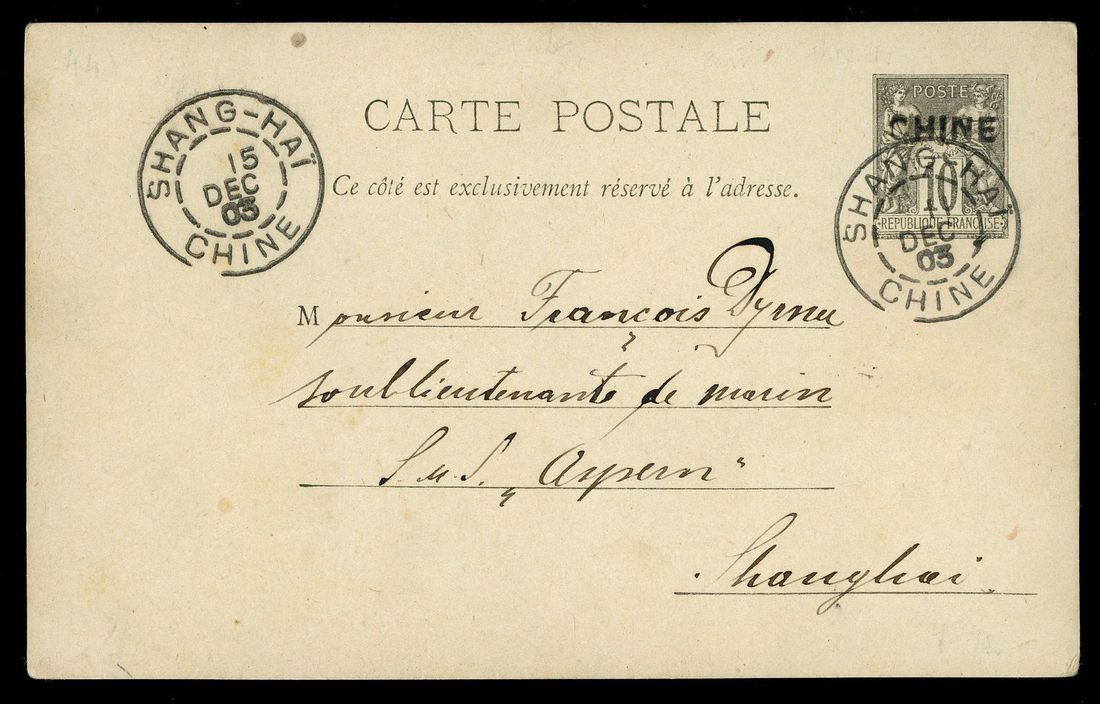 CARTE POSTALE
Ce côté est exclusivement réservé à l'adresse.
SHANG-HAÏ
15
DEC
03
CHINE
POSTE
CHINE
10
REPUBLIQUE FRANÇAISE
SHANG-HAÏ
DEC
03
CHINE
Monsieur François
soublieutenante de marin
S.M.S. „Aspern“
Shanghai